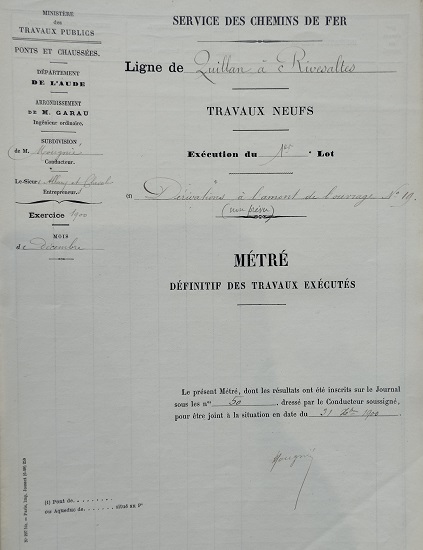 MINISTÈRE
des
TRAVAUX PUBLICS
PONTS ET CHAUSSÉES.
DÉPARTEMENT
DE L'AUDE
ARRONDISSEMENT
DE M. GARAU
Ingénieur ordinaire.
SUBDIVISION
de M.
Conducteur.
Le Sieur
Entrepreneur
Exercice 1900
MOIS
de Décembre
SERVICE DES CHEMINS DE FER
Ligne de Quillan à Rivesaltes
TRAVAUX NEUFS
Exécution du 1er Lot
en Dérivations à l'amont de l'ouvrage No 19.
(non prévu)
MÉTRÉ
DÉFINITIF DES TRAVAUX EXÉCUTÉS
Le présent Métré, dont les résultats ont été inscrits sur le Journal
sous les nos 30, dressé par le Conducteur soussigné,
pour être joint à la situation en date du 31 Xbre 1900.
(1) Pont de . . . . . . . .
ou Aqueduc de . . . . . . . , situé au Po